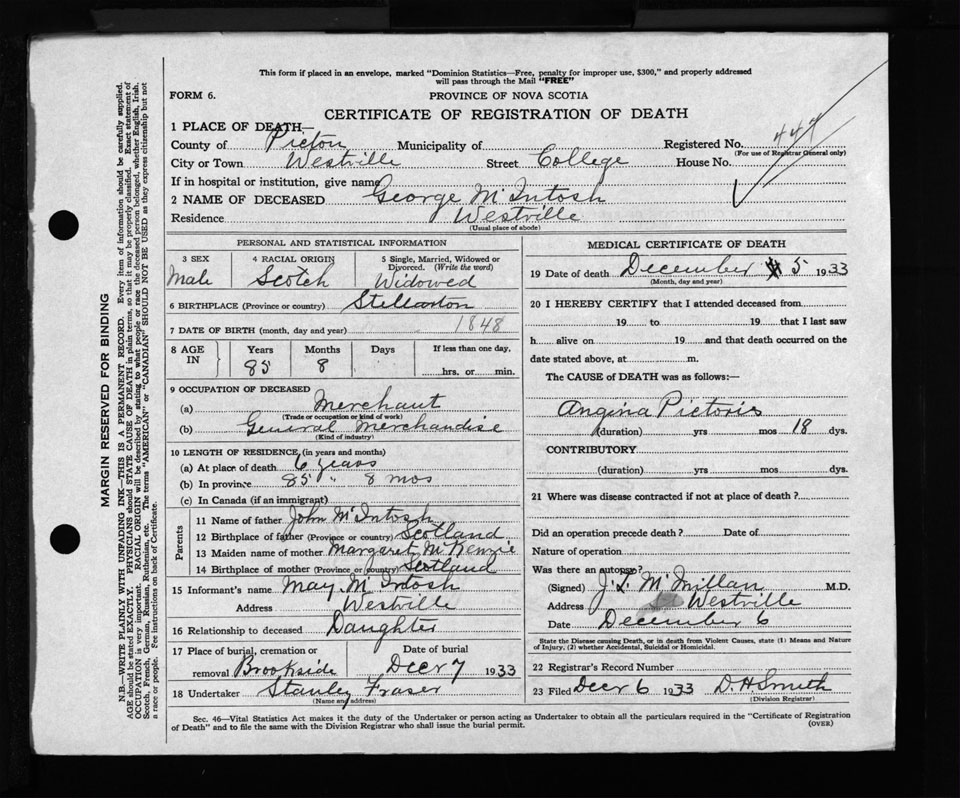 This form if placed in an envelope, marked "Dominion Statistics—Free, penalty for improper use, $300," and properly addressed
will pass through the Mail "FREE"
FORM 6.
PROVINCE OF NOVA SCOTIA
CERTIFICATE OF REGISTRATION OF DEATH
1 PLACE OF DEATH—
County of Pictou Municipality of Registered No. 444
(For use of Registrar General only)
City or Town Westville Street College House No.
If in hospital or institution, give name
2 NAME OF DECEASED George McIntosh
Residence Westville
(Usual place of abode)
PERSONAL AND STATISTICAL INFORMATION
3 SEX 4 RACIAL ORIGIN 5 Single, Married, Widowed or Divorced. (Write the word)
Male Scotch Widowed
6 BIRTHPLACE (Province or country) Stellarton
7 DATE OF BIRTH (month, day and year) 1848
8 AGE IN Years Months Days If less than one day,
85 8 hrs. or min.
9 OCCUPATION OF DECEASED
(a) Merchant
(Trade or occupation or kind of work)
(b) General Merchandise
(Kind of industry)
10 LENGTH OF RESIDENCE (in years and months)
(a) At place of death 6 years
(b) In province 85 " 8 mos
(c) In Canada (if an immigrant)
Parents
11 Name of father John McIntosh
12 Birthplace of father (Province or country) Scotland
13 Maiden name of mother Margaret McKenzie
14 Birthplace of mother (Province or country) Scotland
15 Informant's name May McIntosh
Address Westville
16 Relationship to deceased Daughter
17 Place of burial, cremation or removal Brookside Date of burial Decr 7 1933
18 Undertaker Stanley Fraser
(Name and address)
MEDICAL CERTIFICATE OF DEATH
19 Date of death December 5 1933
(Month, day and year)
20 I HEREBY CERTIFY that I attended deceased from
19 to 19 that I last saw
h alive on 19 and that death occurred on the
date stated above, at m.
The CAUSE of DEATH was as follows:—
Angina Pictoris
(duration) yrs mos 18 dys.
CONTRIBUTORY
(duration) yrs mos dys.
21 Where was disease contracted if not at place of death?
Did an operation precede death? Date of
Nature of operation
Was there an autopsy?
(Signed) J. L. McMillan M.D.
Address Westville
Date December 6
State the Disease causing Death, or in death from Violent Causes, state (1) Means and Nature
of Injury, (2) whether Accidental, Suicidal or Homicidal.
22 Registrar's Record Number
23 Filed Decr 6 1933 D.H. Smith
(Division Registrar)
Sec. 46—Vital Statistics Act makes it the duty of the Undertaker or person acting as Undertaker to obtain all the particulars required in the "Certificate of Registration
of Death" and to file the same with the Division Registrar who shall issue the burial permit. (OVER)
MARGIN RESERVED FOR BINDING
N.B.—WRITE PLAINLY WITH UNFADING INK—THIS IS A PERMANENT RECORD. Every item of information should be carefully supplied.
AGE should be stated EXACTLY. PHYSICIANS should STATE CAUSE OF DEATH in plain terms, so that it may be properly classified. Exact statement of
OCCUPATION is very important. RACIAL ORIGIN will be described by stating to what people or race the deceased person belonged, whether English, Irish,
Scotch, French, German, Russian, Ruthenian, etc. The terms "AMERICAN" or "CANADIAN" SHOULD NOT BE USED as they express citizenship but not
a race or people. See instructions on back of Certificate.